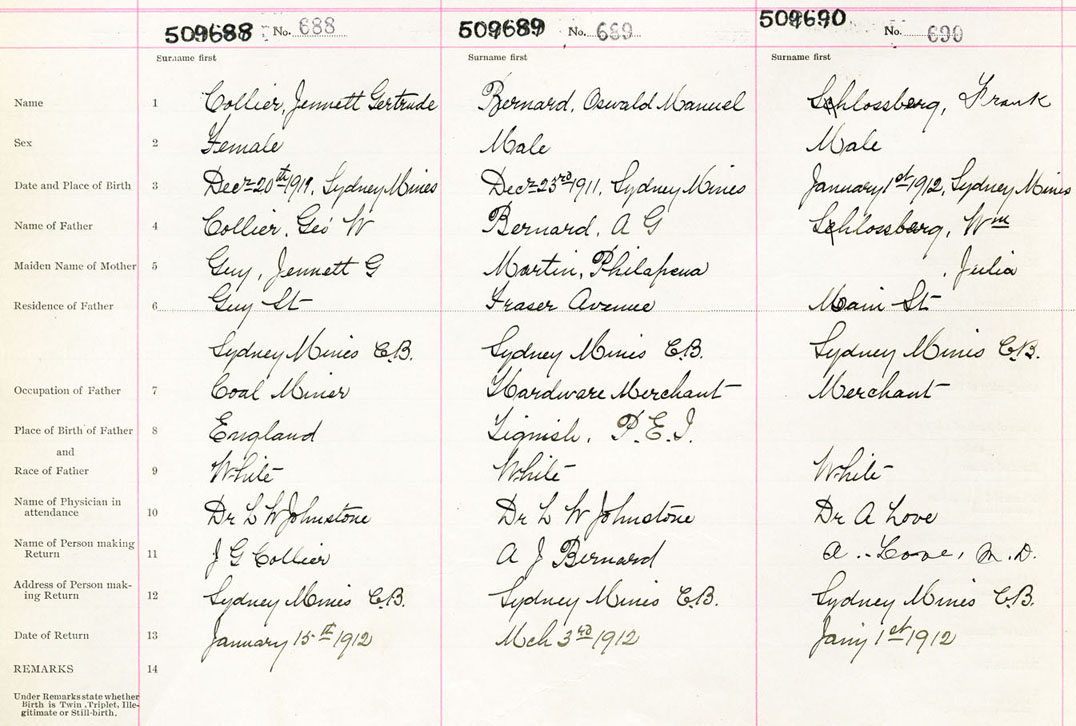 509688 No. 688 509689 No. 689 509690 No. 690
Surname first Surname first Surname first
Name 1 Collier, Jennett Gertrude Bernard, Oswald Manuel Schlossberg, Frank
Sex 2 Female Male Male
Date and Place of Birth 3 Decr 20th 1911, Sydney Mines Decr 23rd 1911, Sydney Mines January 1st 1912, Sydney Mines
Name of Father 4 Collier, Geo W Bernard, A G Schlossberg, Wm
Maiden Name of Mother 5 Guy, Jennett G Martin, Philapena , Julia
Residence of Father 6 Guy St Fraser Avenue Main St
Sydney Mines C.B. Sydney Mines C.B. Sydney Mines C.B.
Occupation of Father 7 Coal Miner Hardware Merchant Merchant
Place of Birth of Father 8 England Tignish, P.E.I.
and
Race of Father 9 White White White
Name of Physician in
attendance 10 Dr L W Johnstone Dr L W Johnstone Dr A Love
Name of Person making
Return 11 J G Collier A J Bernard A. Love, M.D.
Address of Person mak-
ing Return 12 Sydney Mines C.B. Sydney Mines C.B. Sydney Mines C.B.
Date of Return 13 January 15th 1912 Mch 3rd 1912 Jany 1st 1912
REMARKS 14
Under Remarks state whether
Birth is Twin, Triplet, Ille-
gitimate or Still-birth.